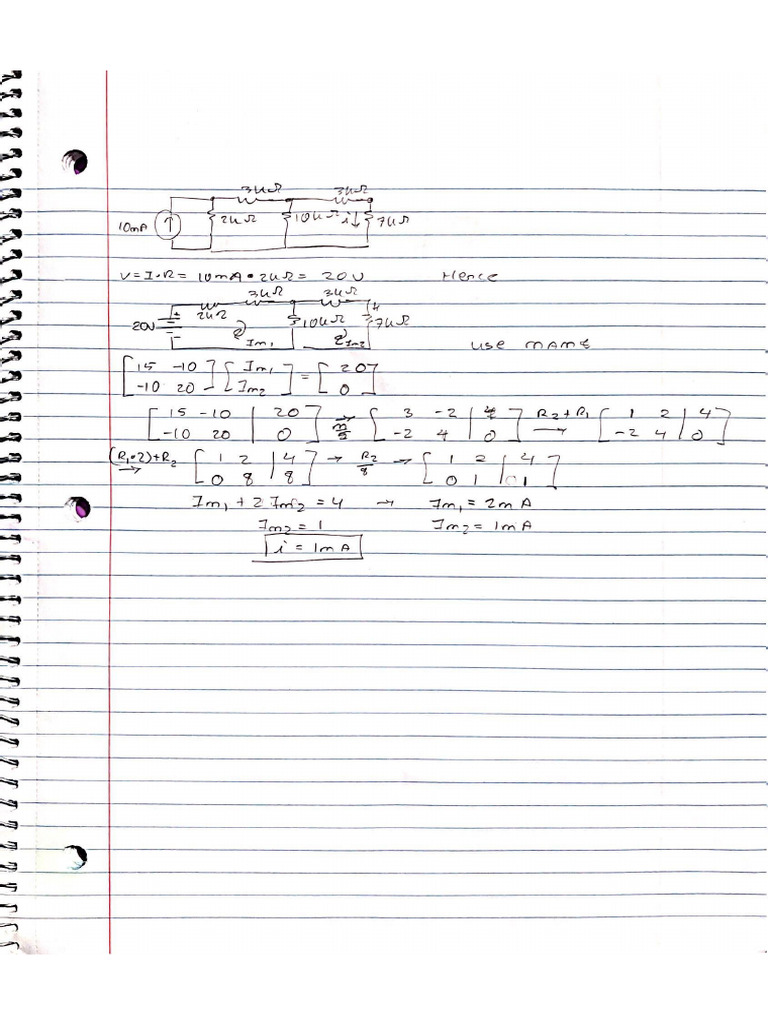 3kΩ 3kΩ
10mA 2kΩ 10kΩ i↓ 7kΩ
V = I·R = 10mA · 2kΩ = 20V Hence
3kΩ 3kΩ
20V + - 2kΩ 10kΩ 7kΩ
Im₁ Im₂
use MAMs
[15 -10; -10 20] [Im₁; Im₂] = [20; 0]
[15 -10 | 20; -10 20 | 0] → [3 -2 | 4; -2 4 | 0] R₂+R₁ → [1 2 | 4; -2 4 | 0]
(R₁·2)+R₂ → [1 2 | 4; 0 8 | 8] → R₂/8 → [1 2 | 4; 0 1 | 1]
Im₁ + 2 Im₂ = 4 → Im₁ = 2mA
Im₂ = 1 Im₂ = 1mA
i = 1mA